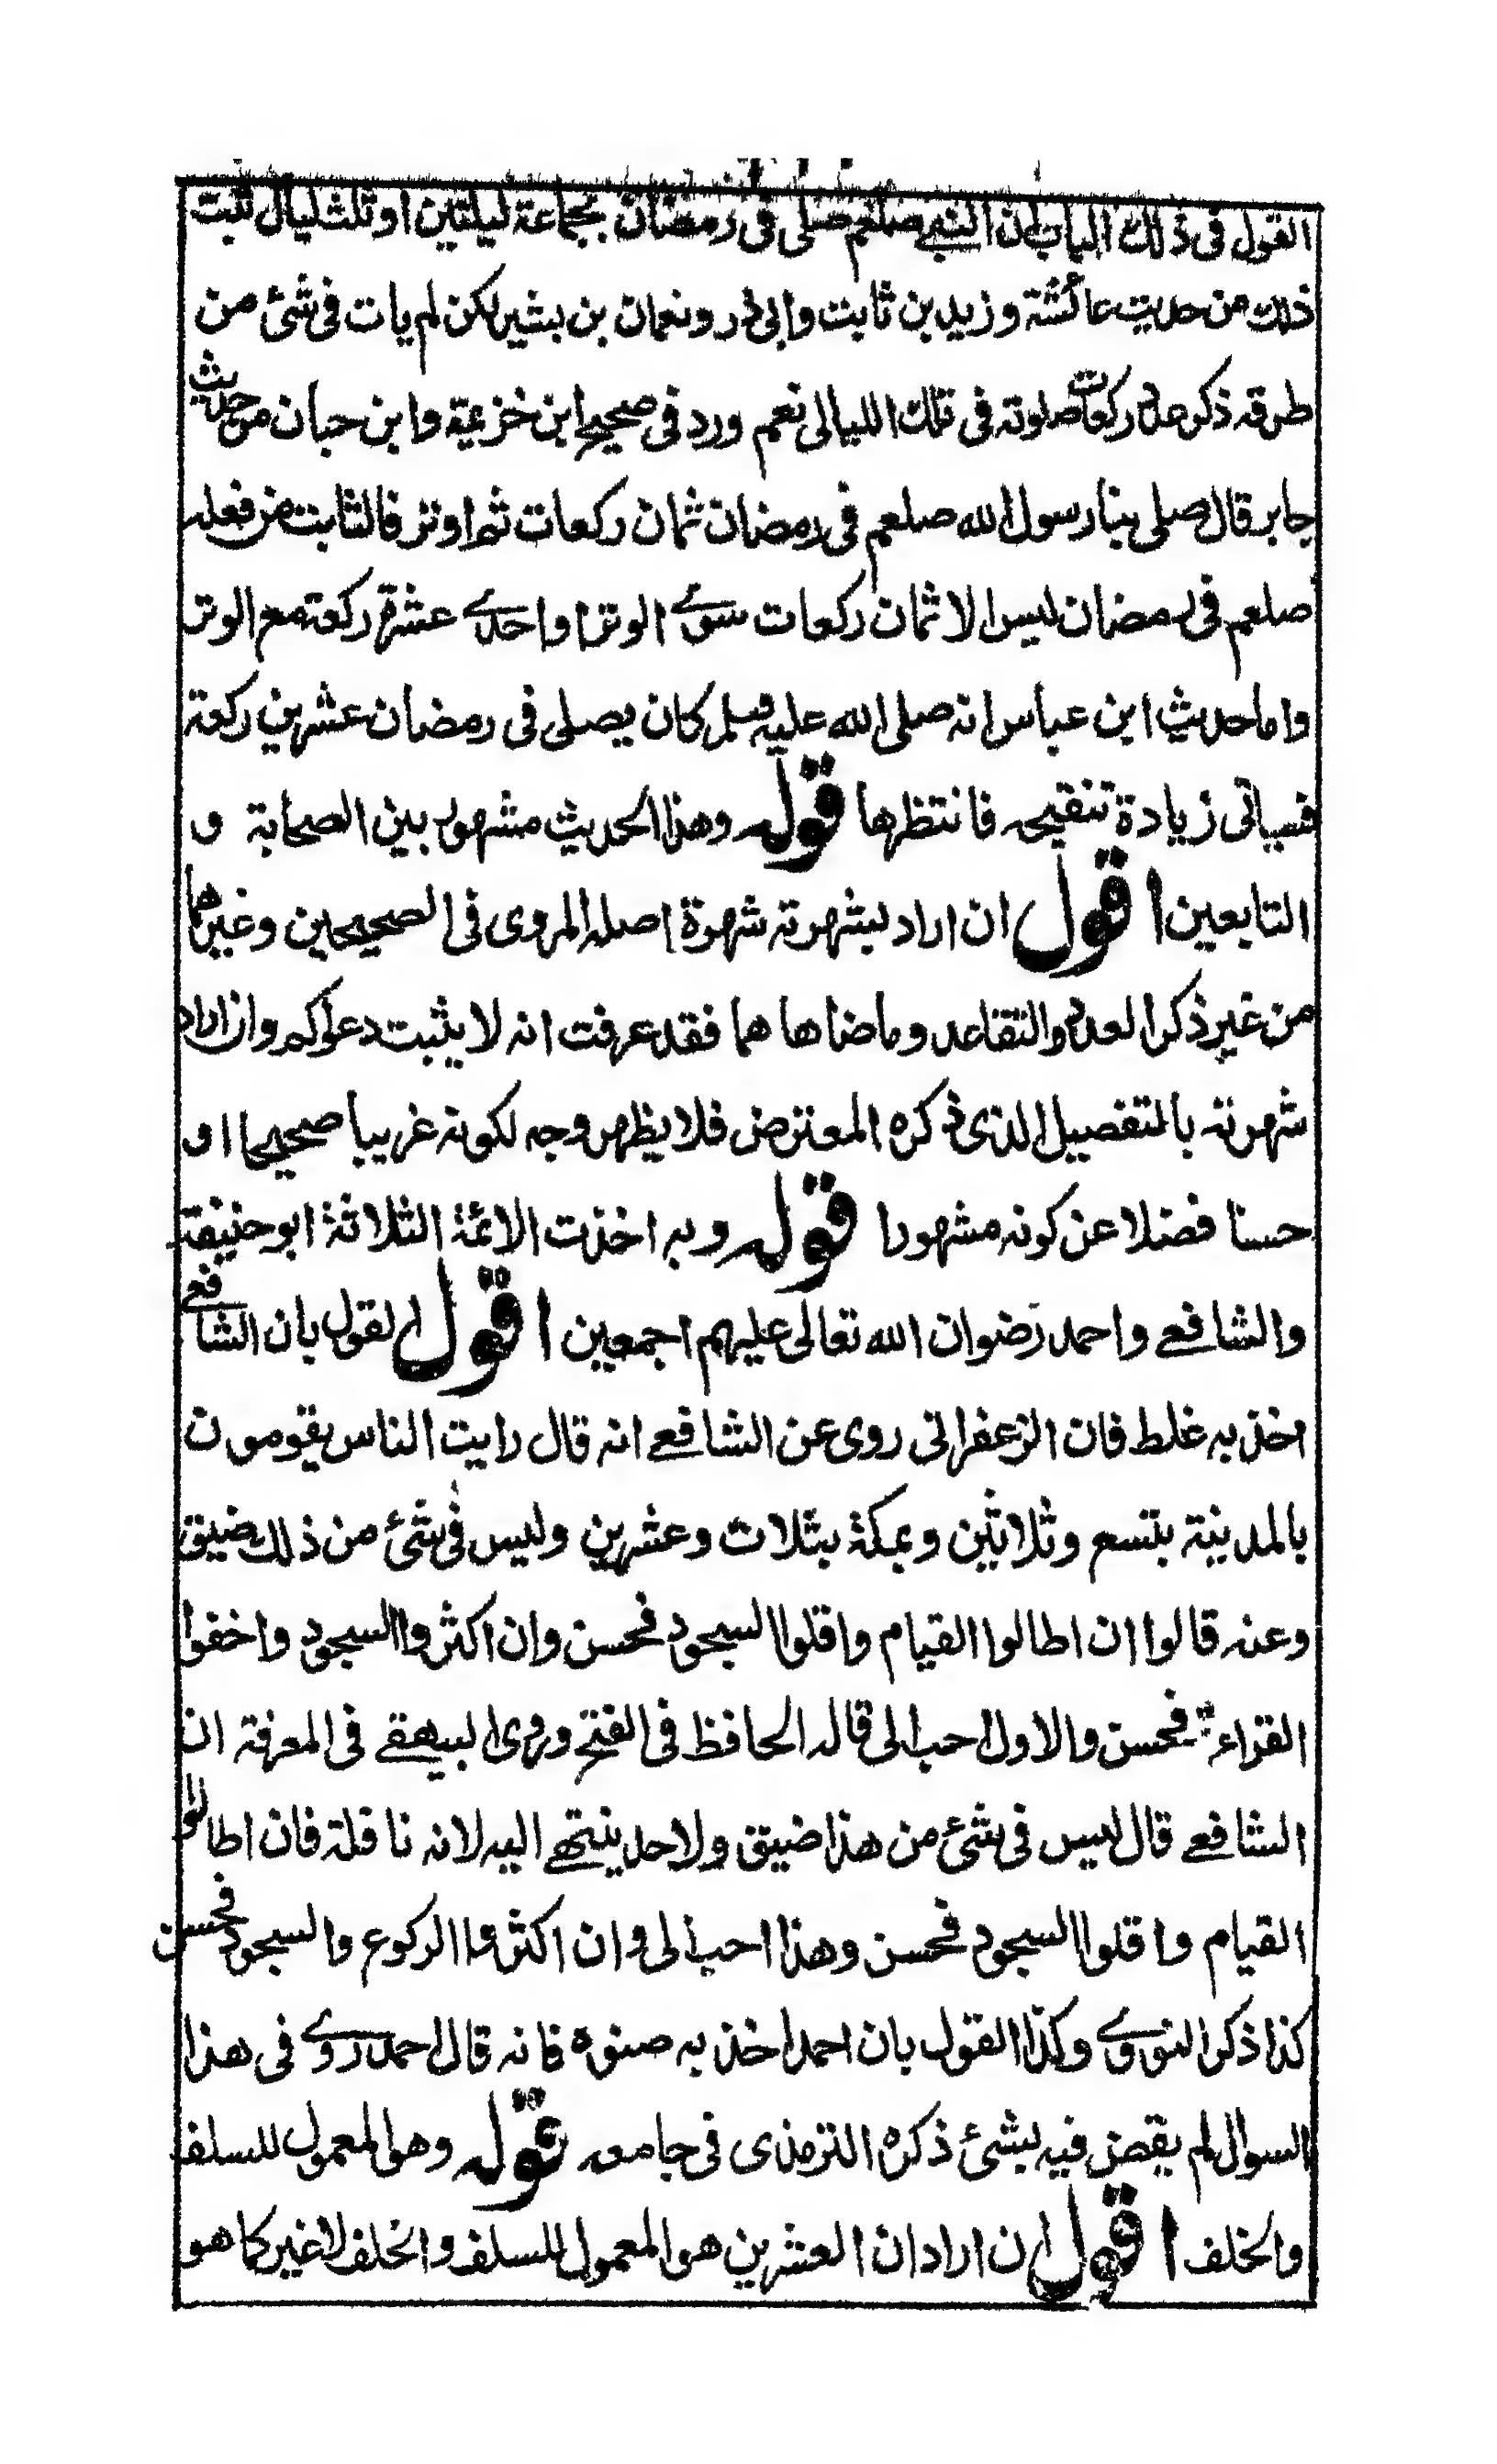 القول فى ذلك الباب ان النبى صلعم صلى فى رمضان بجماعة ليلتين او ثلث ليال ثبت
ذلك من حديث عائشة و زيد بن ثابت وابى ذر و نعمان بن بشير لكن لم يات فى شئ من
طرقه ذكر عدد ركعات صلوته فى تلك الليالى نعم ورد فى صحيح ابن خزيمة وابن حبان من حديث
جابر قال صلى بنا رسول الله صلعم فى رمضان ثمان ركعات ثم اوتر فالثابت من فعله
صلعم فى رمضان ليس الا ثمان ركعات سوى الوتر او احدى عشرة ركعة مع الوتر
واما حديث ابن عباس انه صلى الله عليه وسلم كان يصلى فى رمضان عشرين ركعة
فسياتى زيادة تنقيحه فانتظرها قوله وهذا الحديث مشهور بين الصحابة و
التابعين اقول ان اراد بشهرته شهرة اصله المروى فى الصحيحين وغيرهما
من غير ذكر العدد والتقاعد وماضاها هما فقد عرفت انه لا يثبت دعواكم وان اراد
شهرته بالتفصيل الذى ذكره المعترض فلا يظهر وجه لكونه غريبا صحيحا او
حسنا فضلا عن كونه مشهورا قوله وبه اخذت الائمة الثلاثة ابو حنيفة
والشافعى واحمد رضوان الله تعالى عليهم اجمعين اقول القول بان الشافعى
اخذ به غلط فان الزعفرانى روى عن الشافعى انه قال رايت الناس يقومون
بالمدينة بتسع وثلاثين وبمكة بثلاث وعشرين وليس فى شئ من ذلك ضيق
وعنه قالوا ان اطالوا القيام واقلوا السجود فحسن وان اكثروا السجود واخفوا
القراءة فحسن والاول احب الى قاله الحافظ فى الفتح وروى البيهقى فى المعرفة ان
الشافعى قال ليس فى شئ من هذا ضيق ولا حد ينتهى اليه لانه نافلة فان اطالوا
القيام واقلوا السجود فحسن وهذا احب الى وان اكثروا الركوع والسجود فحسن
كذا ذكر النووى وكذا القول بان احمد اخذ به صنوه فانه قال احمد روى فى هذا
السوال لم يقض فيه بشئ ذكره الترمذى فى جامعه قوله وهو المعمول للسلف
والخلف اقول ان اراد ان العشرين هو المعمول للسلف والخلف لا غير كما هو